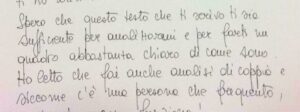 Spero che questo testo che ti scrivo ti sia
sufficiente per analizzarmi e per farti un
quadro abbastanza chiaro di come sono.
Ho letto che fai anche analisi di coppia e
siccome c'è una persona che frequento,